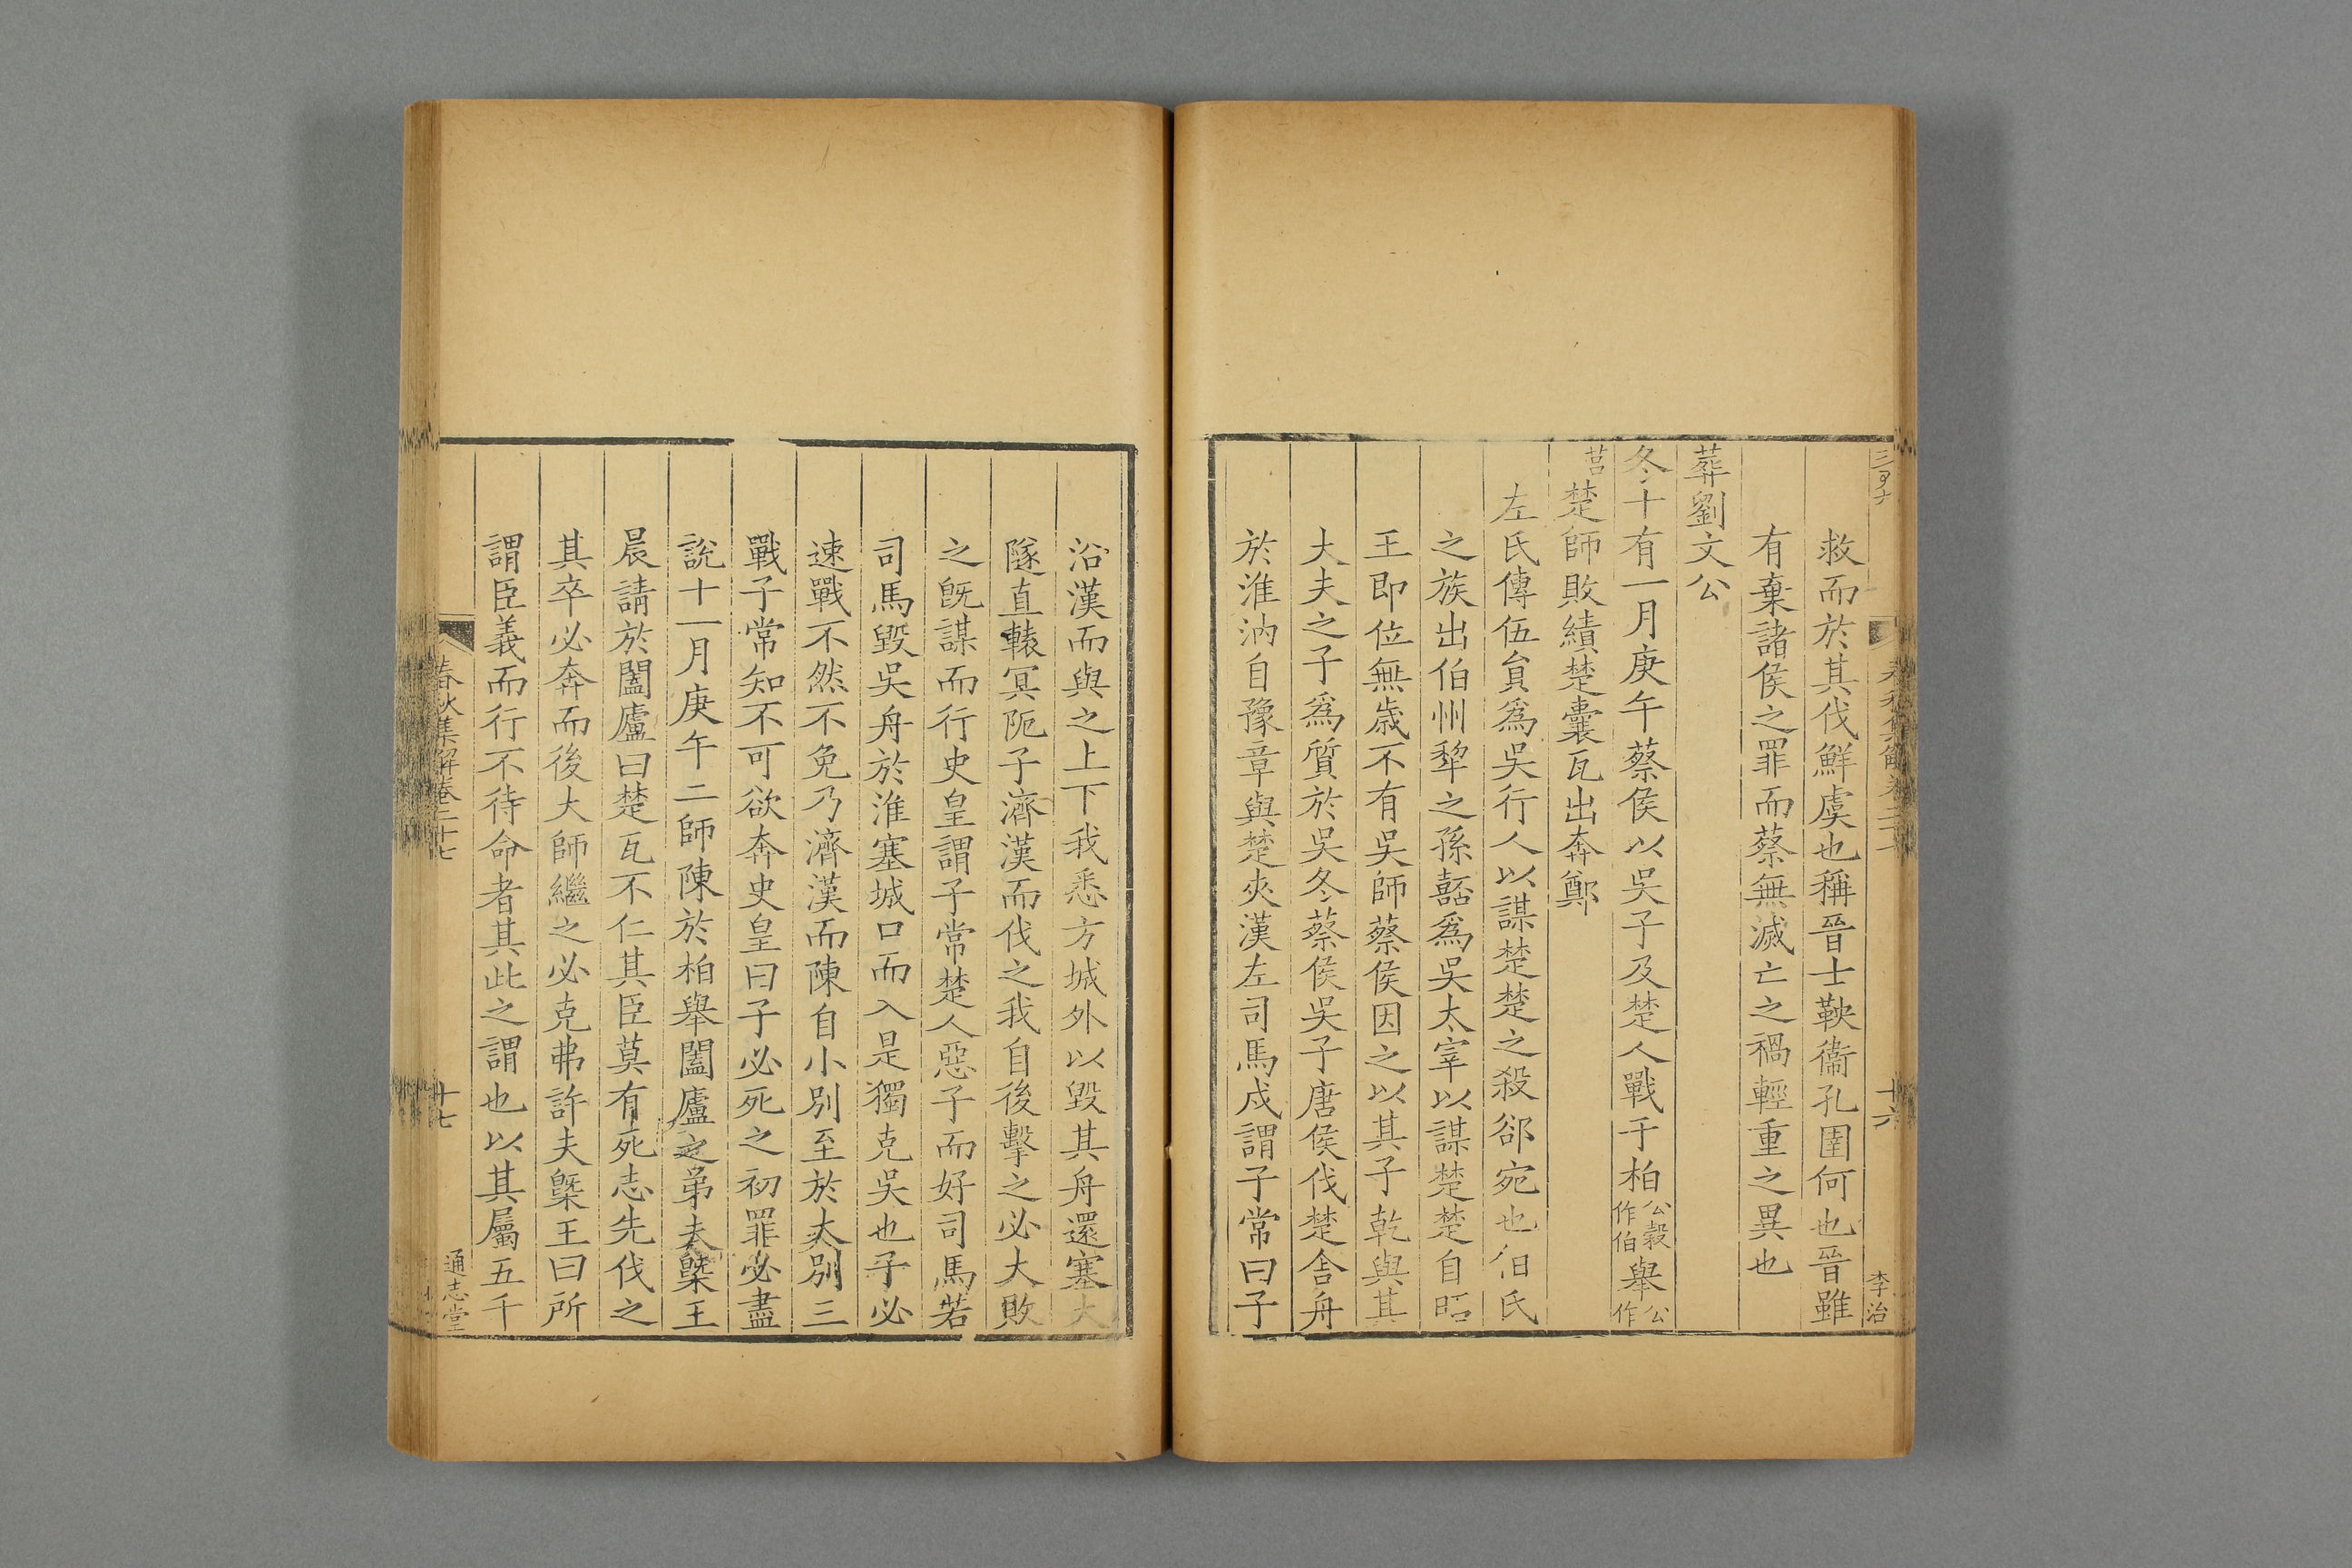 救而於其伐鮮虞也稱晉士鞅衞孔圉何也晉雖
有棄諸侯之罪而蔡無滅亡之禍輕重之異也
葬劉文公
冬十有一月庚午蔡侯以吳子及楚人戰于柏公穀作伯舉公作
莒楚師敗績楚囊瓦出奔鄭
左氏傳伍員爲吳行人以謀楚楚之殺郤宛也伯氏
之族出伯州犂之孫嚭爲吳太宰以謀楚楚自昭
王即位無歲不有吳師蔡侯因之以其子乾與其
大夫之子爲質於吳冬蔡侯吳子唐侯伐楚舍舟
於淮汭自豫章與楚夾漢左司馬戍謂子常曰子
十六
李治
沿漢而與之上下我悉方城外以毀其舟還塞大
隧直轅冥阨子濟漢而伐之我自後擊之必大敗
之旣謀而行史皇謂子常楚人惡子而好司馬若
司馬毀吳舟於淮塞城口而入是獨克吳也子必
速戰不然不免乃濟漢而陳自小別至於大別三
戰子常知不可欲奔史皇曰子必死之初罪必盡
說十一月庚午二師陳於柏舉闔廬之弟夫槩王
晨請於闔廬曰楚瓦不仁其臣莫有死志先伐之
其卒必奔而後大師繼之必克弗許夫槩王曰所
謂臣義而行不待命者其此之謂也以其屬五千
春秋集解卷二十七
十七
通志堂